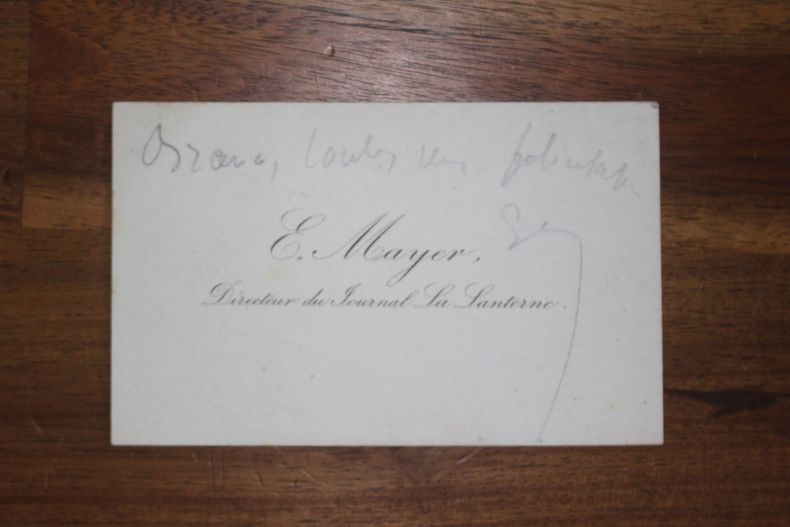 Bravo, toutes mes félicitations
E. Mayer,
Directeur du Journal La Lanterne.